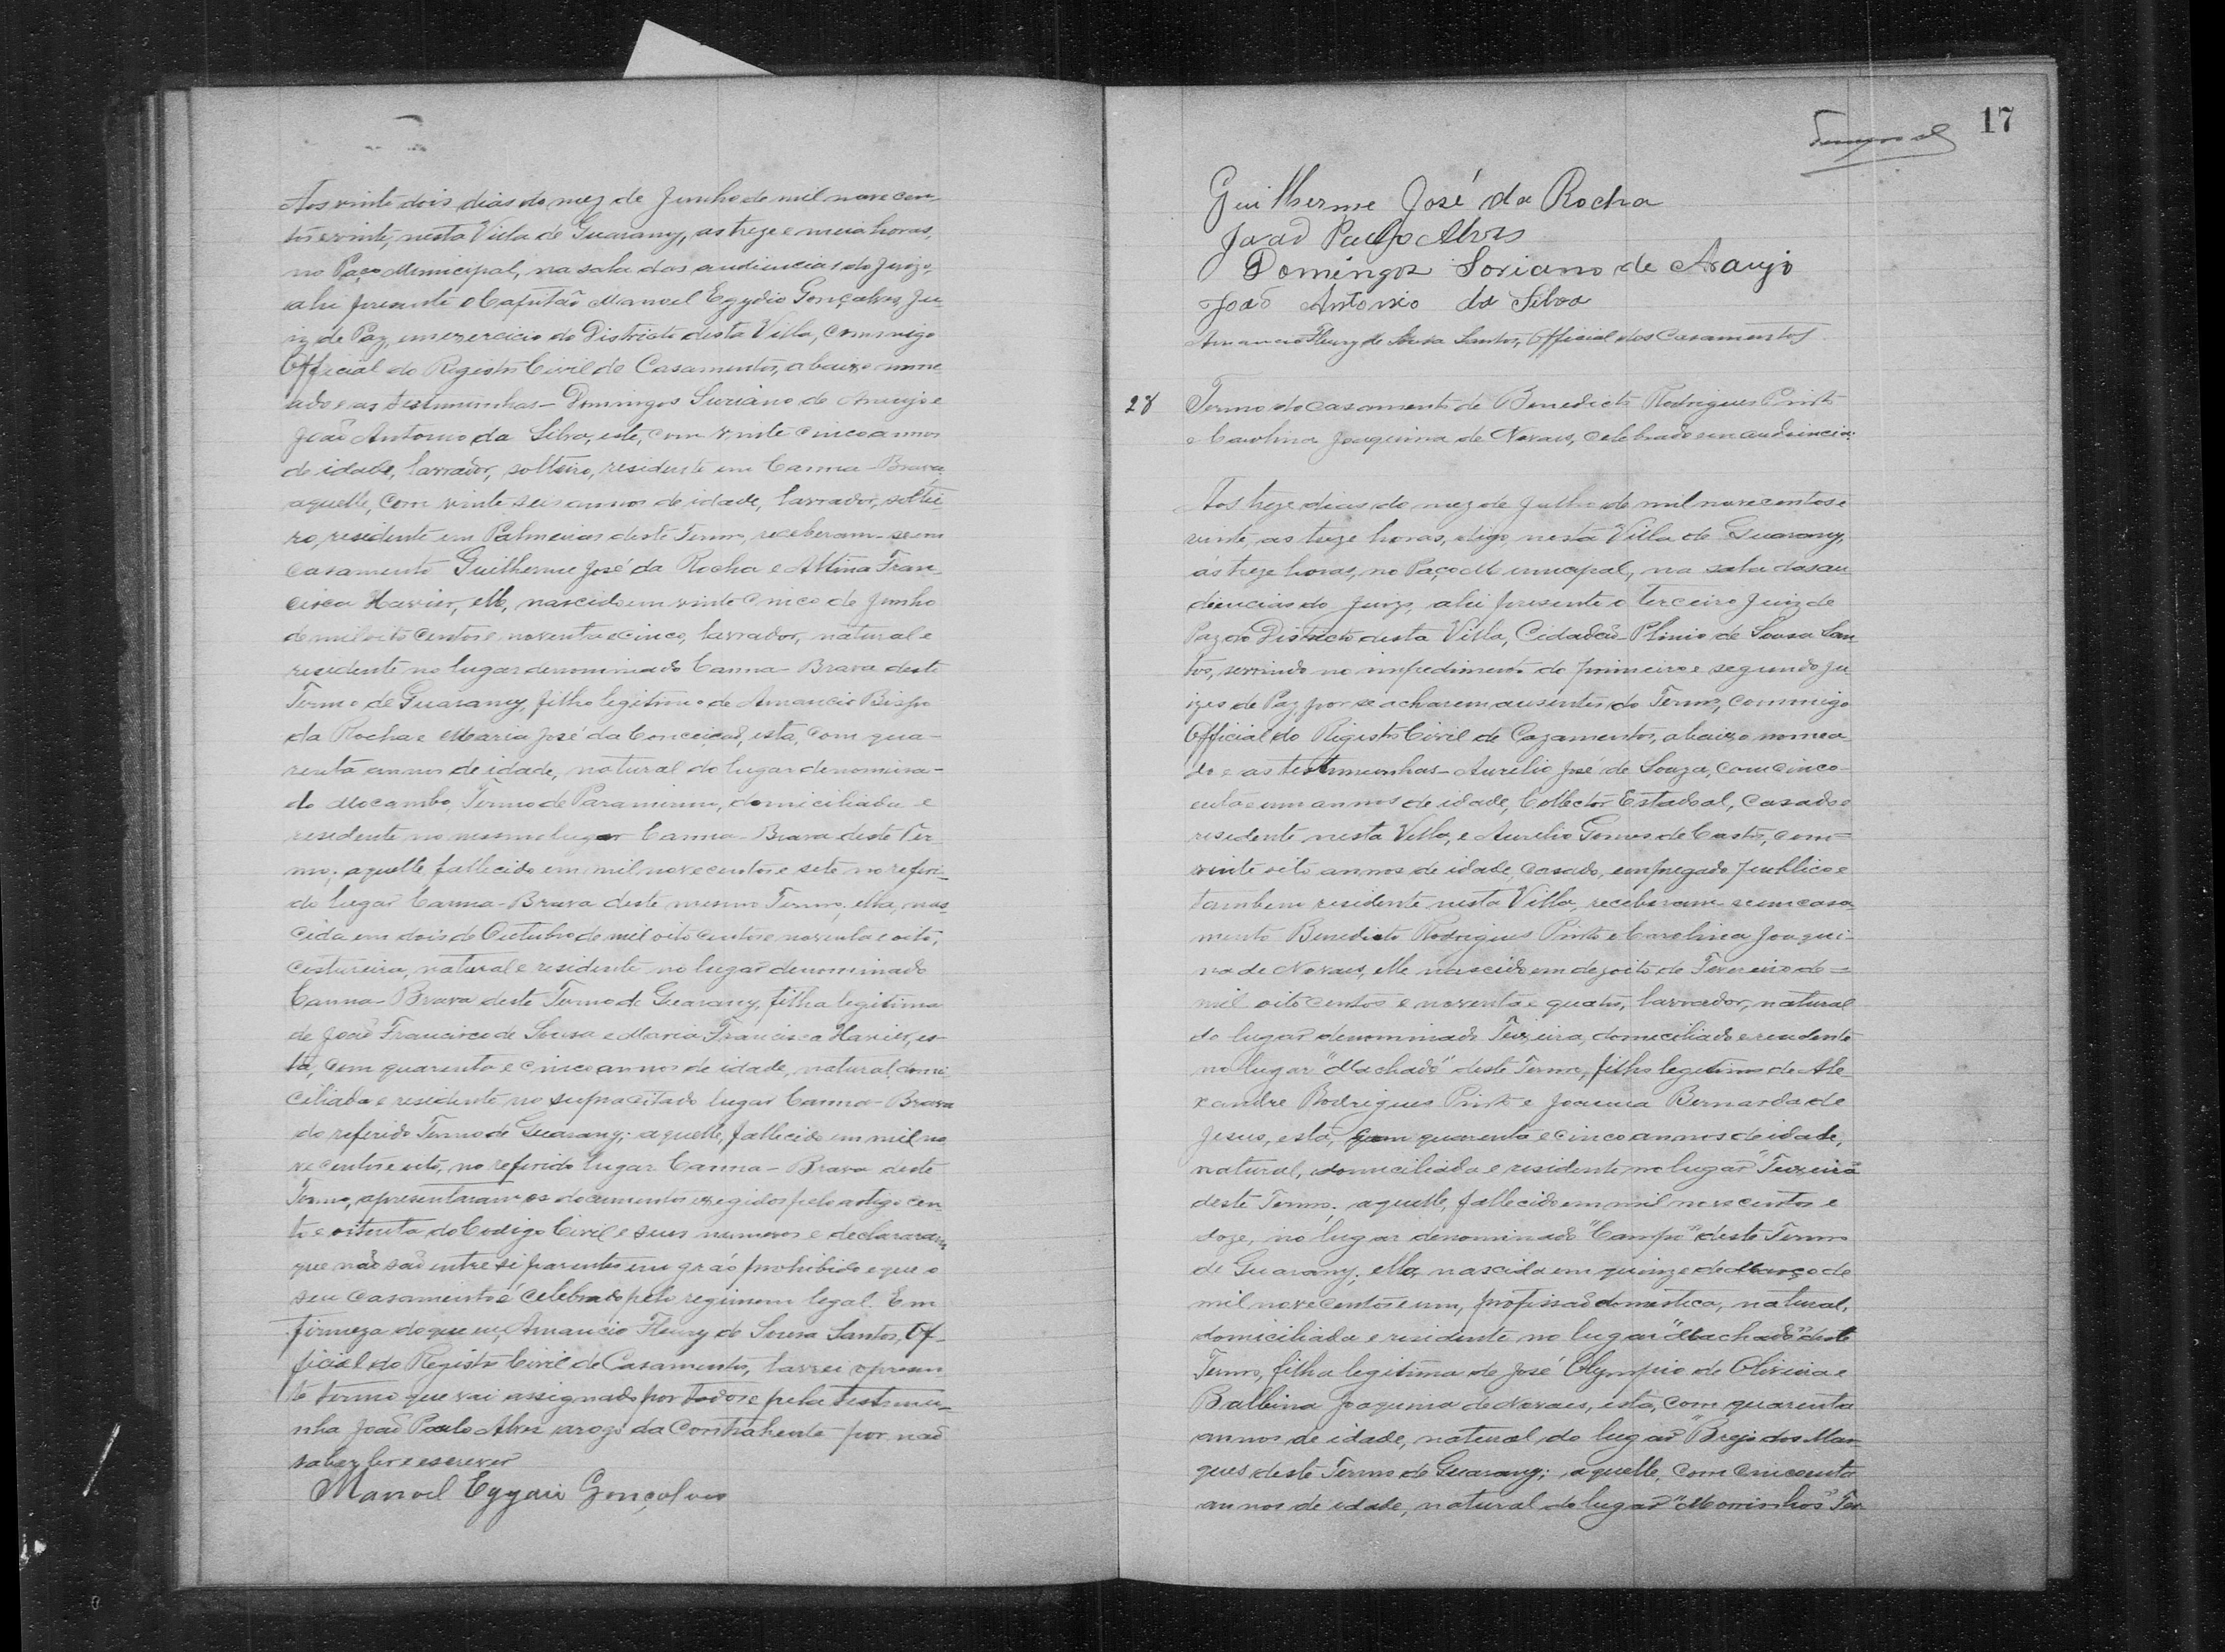 Aos vinte dois dias do mez de Junho de mil nove cen-
tos e vinte, nesta Villa de Guarany, as treze e meia horas,
no Paço Municipal, na sala das audiencias do Juizo,
ahi presente o Capitão Manoel Egydio Gonçalves, Ju-
iz de Paz, em exercicio do Districto desta Villa, commigo
Official do Registro Civil de Casamentos, abaixo nome-
ado e as testimunhas - Domingos Suriano de Araujo e
João Antonio da Silva, este, com vinte cinco annos
de idade, lavrador, solteiro, residente em Canna-Brava,
aquelle, com vinte seis annos de idade, lavrador, soltei-
ro, residente em Palmeiras deste Termo, receberam-se em
casamento Guilherme José da Rocha e Altina Fran-
cisca Xavier, elle, nascido em vinte cinco de Junho
de mil oito centos e noventa e cinco, lavrador, natural e
residente no lugar denominado Canna-Brava deste
Termo de Guarany, filho legitimo de Amancio Bispo
da Rocha e Maria José da Conceição, esta, com qua-
renta annos de idade, natural do lugar denomina-
do Mocambo, Termo de Paramirim, domiciliada e
residente no mesmo lugar Canna-Brava deste Ter-
mo; aquelle fallecido em mil nove centos e sete no referi-
do lugar Canna-Brava deste mesmo Termo, ella, nas-
cida em dois de Outubro de mil oito centos e noventa e oito,
costureira, natural e residente no lugar denominado
Canna-Brava deste Termo de Guarany, filha legitima
de João Francisco de Sousa e Maria Francisca Xavier, es-
ta, com quarenta e cinco annos de idade, natural, domi-
ciliada e residente no supracitado lugar Canna-Brava
do referido Termo de Guarany; aquelle, fallecido em mil no-
ve centos e oito, no referido lugar Canna-Brava deste
Termo, apresentaram os documentos exegidos pelo artigo cen-
to e oitenta do Codigo Civil e seus numeros e declararam
que não são entre si parentes em gráo prohibido e que o
seu casamento é celebrado pelo regimem legal. Em
firmeza do que eu, Amancio Fleury de Sousa Santos, Of-
ficial do Registro Civil de Casamentos, lavrei o presen-
te termo que vai assignado por todos e pela testimu-
nha João Paulo Alves arogo da Contrahente por não
saber ler e escrever
Manoel Egydio Gonçalves
17
Guilherme José da Rocha
João Paulo Alves
Domingos Soriano de Araujo
João Antonio da Silva
Amancio Fleury de Sousa Santos, Official dos Casamentos
28 Termo do casamento de Benedicto Rodrigues Pinto
e Carolina Joaquina de Novaes, celebrado em audiencia.
Aos treze dias do mez de Julho de mil nove centos e
vinte, as treze horas, digo, nesta Villa de Guarany,
ás treze horas, no Paço Municipal, na sala das au-
diencias do Juizo, ahi presente o terceiro Juiz de
Paz do Districto desta Villa, Cidadão Plinio de Sousa San-
tos, servindo no impedimento do primeiro e segundo Ju-
izes de Paz, por se acharem ausentes do Termo, commigo
Official do Registro Civil de Cazamentos, abaixo nomea-
do e as testimunhas - Aurelio José de Souza, com cinco-
enta e um annos de idade, Collector Estadoal, casado e
residente nesta Villa, e Aurelio Gomes de Castro, com
vinte oito annos de idade, casado, empregado publico e
tambem residente nesta Villa, receberam-se em casa-
mento Benedicto Rodrigues Pinto e Carolina Joaqui-
na de Novaes, elle nascido em dezoito de Fevereiro de
mil oito centos e noventa e quatro, lavrador, natural
do lugar denominado Teixeira, domiciliado e residente
no lugar "Machado" deste Termo, filho legitimo de Ale-
xandre Rodrigues Pinto e Joanna Bernarda de
Jesus, esta, com quarenta e cinco annos de idade,
natural, domiciliada e residente no lugar "Teixeira"
deste Termo; aquelle, fallecido em mil nove centos e
doze, no lugar denominado "Campo" deste Termo
de Guarany; ella, nascida em quinze de Março de
mil nove centos e um, profissão domestica, natural,
domiciliada e residente no lugar "Machado" deste
Termo, filha legitima de José Olympio de Oliveira e
Balbina Joaquina de Novaes, esta, com quarenta
annos de idade, natural do lugar "Brejo dos Mar-
ques deste Termo de Guarany; aquelle, com cincoenta
annos de idade, natural do lugar "Morrinhos" Ter-